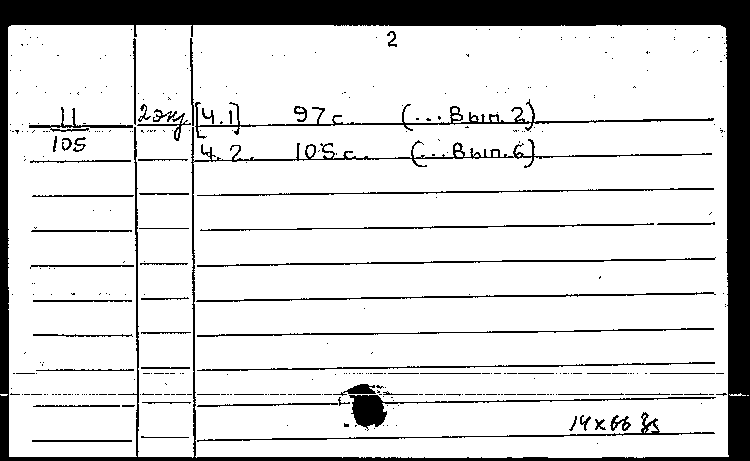 2
11 2 экз [Ч.1] 97 с. (... Вып. 2)
105 Ч. 2. 105 с. (... Вып. 6)
14 х 66